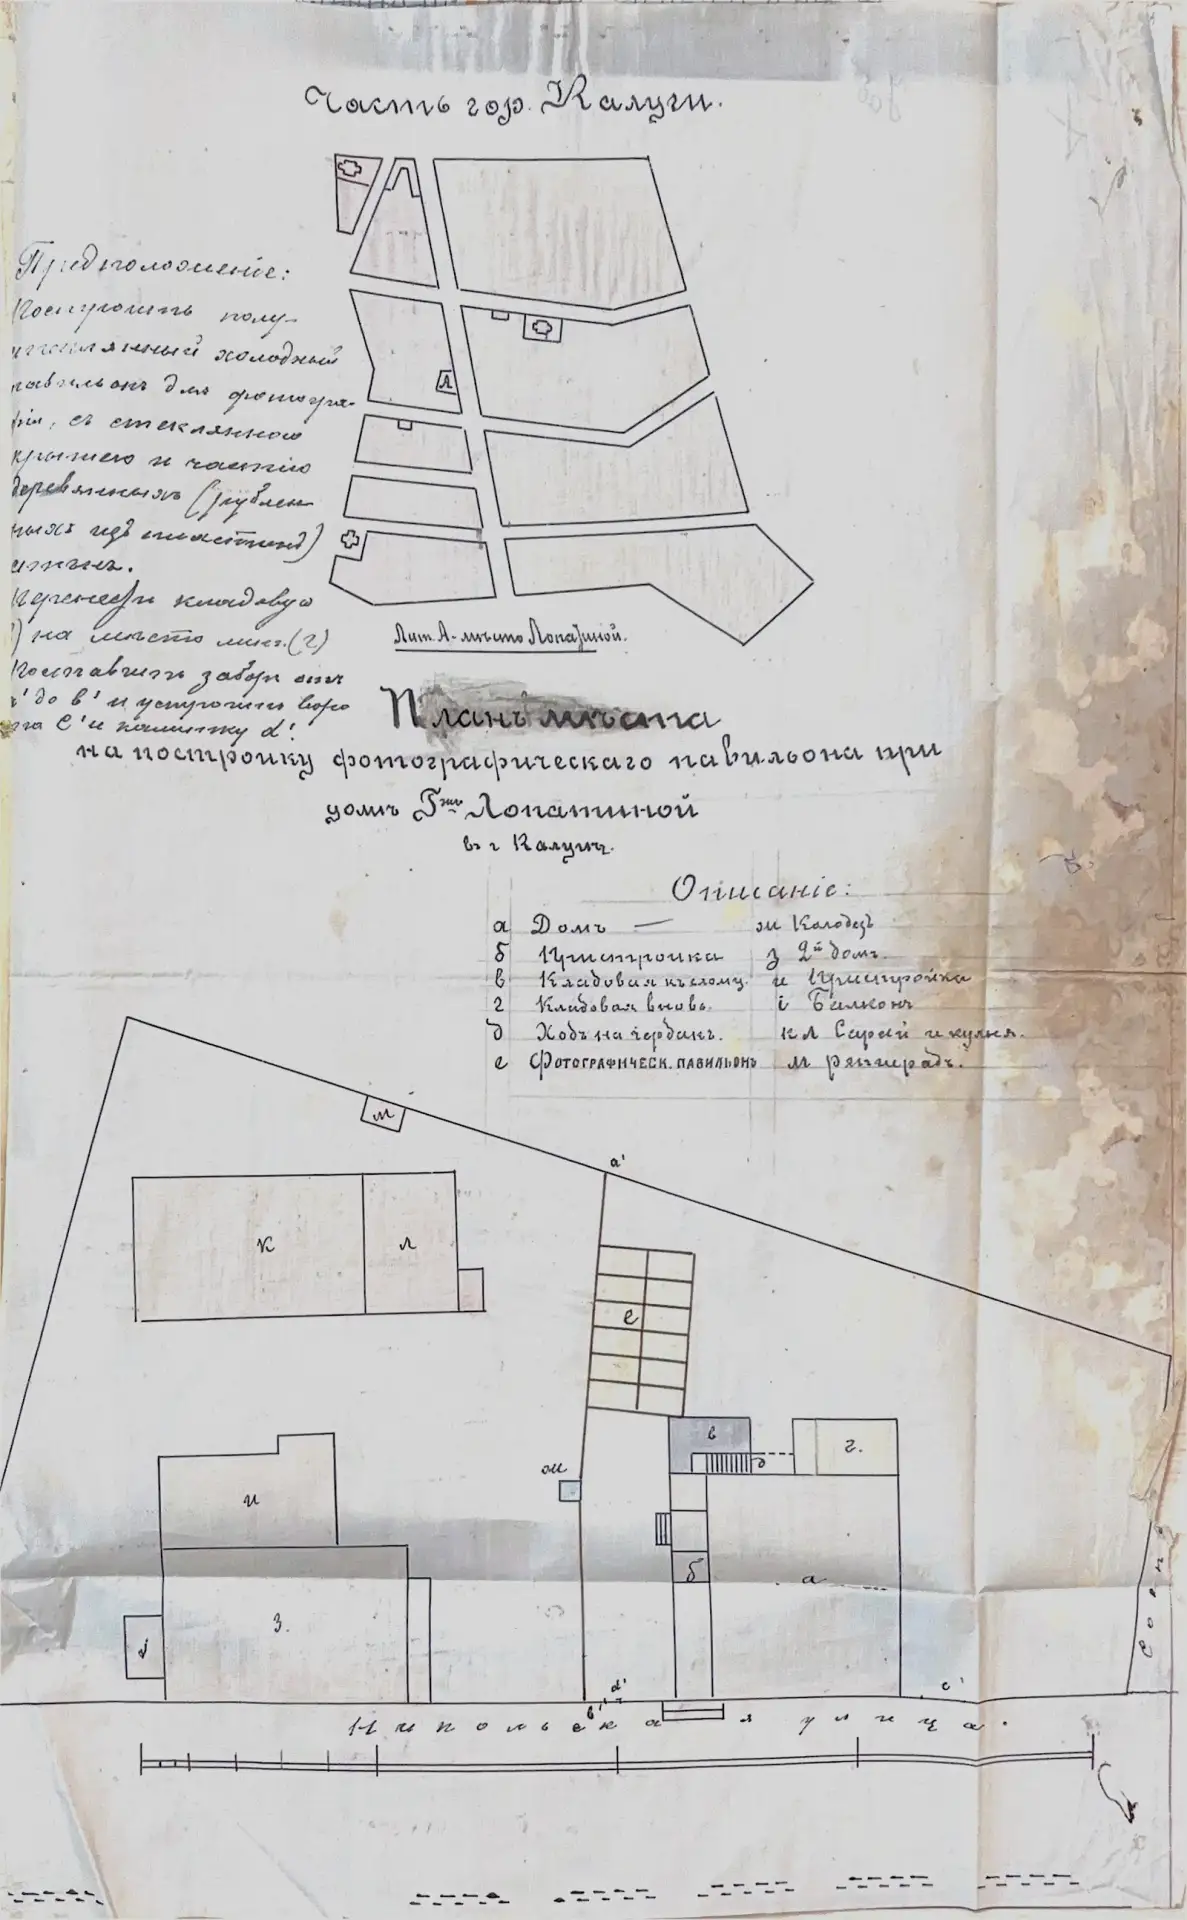 Часть гор. Калуги.
Предположеніе:
Построить полу-
стеклянный холодный
павильонъ для фотогра-
фіи, съ стеклянною
крышею и частію
деревянныхъ (рублен
ныхъ изъ пластинъ)
стѣнъ.
Перенести кладовую
) на мѣсто лит. (г)
Поставить заборъ отъ
а' до в' и устроить воро
та с' и калитку d'.
А
Лит. А - мѣсто Лопатиной.
Планъ мѣста
на постройку фотографическаго павильона при
домѣ Г-жи Лопатиной
въ г. Калугѣ.
Описаніе:
а Домъ — ж Колодезь
б Пристройка з 2й домъ.
в Кладовая къ слому. и Пристройка
г Кладовая вновь. і Балконъ
д Ходъ на чердакъ. к л Сарай и кухня.
е Фотографическ. павильонъ м ретирадъ.
м
а'
к л
е
в г.
д
ж
и
б
а
з.
і
Сосѣд
d' с'
в'
Никольская улица.